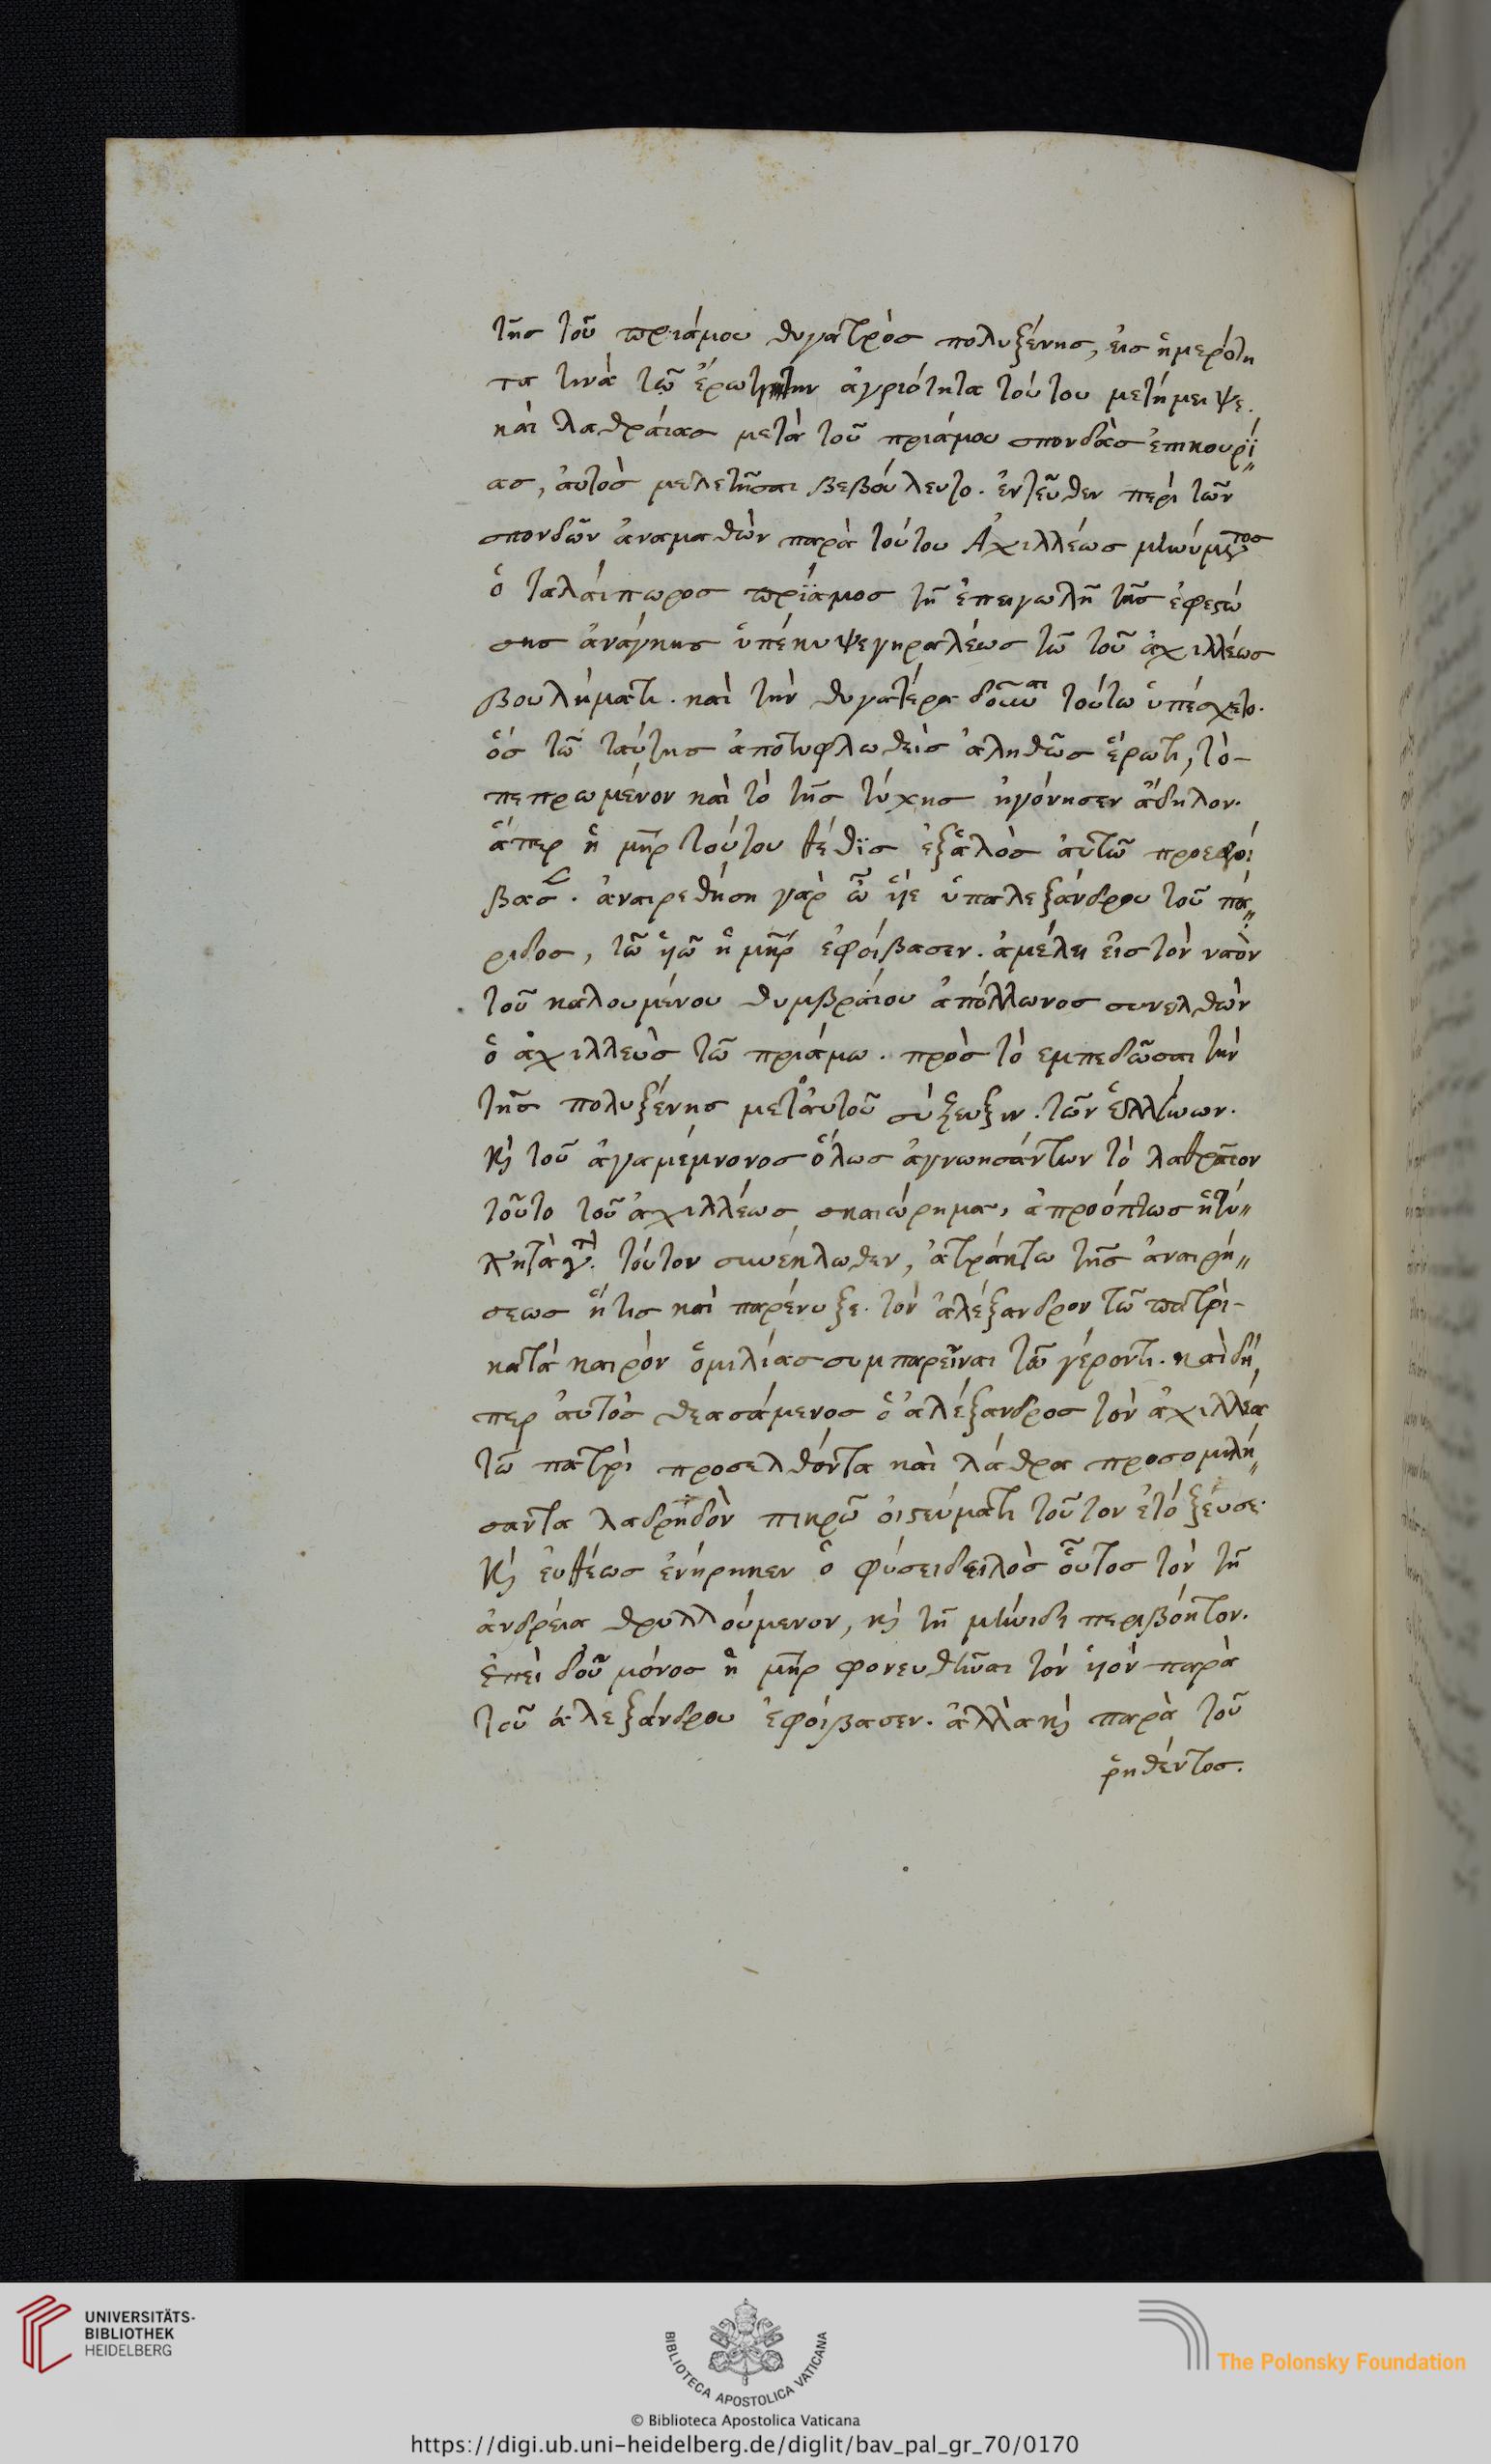 τῆς τοῦ πριάμου θυγατρὸς πολυξένης, εἰς ἡμερότη
τα τινὰ τῶ ἔρωτι τὴν ἀγριότητα τούτου μετήμειψε.
καὶ λαθραίας μετὰ τοῦ πριάμου σπονδὰς ἐπικουρΐ
ας, αὐτὸς μελετῆσαι βεβούλευτο. ἐντεῦθεν περὶ τῶν
σπονδῶν ἀναμαθὼν παρὰ τούτου Ἀχιλλέως
ὁ ταλαίπωρος πρΐαμος τῆ ἐπειγωλῆ τῆς ἐφεστώ
σης ἀνάγκης ὑπέκυψε γηραλέως τῶ τοῦ ἀχιλλέως
βουλήματι. καὶ τὴν θυγατέρα δοῦναι τούτω ὑπέσχετο.
ὃς τῶ ταύτης ἀποτυφλωθεὶς ἀληθῶς ἔρωτι, τὸ-
πεπρωμένον καὶ τὸ τῆς τύχης ἠγνόησεν ἄδηλον.
ἅπερ ἡ μῆρ τούτου θέθϊς ἐξαλὸς αὐτῶ προεφοί
βασ. ἀναιρεθήση γὰρ ὦ ὑιὲ ὑπαλεξάνδρου τοῦ πά
ριδος, τῶ ὑιῶ ἡ μῆρ ἐφοίβασεν. ἀμέλει εἰς τὸν ναὸν
τοῦ καλουμένου θυμβραίου ἀπόλλωνος συνελθὼν
ὁ ἀχιλλεὺς τῶ πριάμω. πρὸς τὸ εμπεδῶσαι τὴν
τῆς πολυξένης μετ' αὐτοῦ σύζευξιν. τῶν ἑλλήνων.
κὶ τοῦ ἀγαμέμνονος ὅλως ἀγνωησάντων τὸ λαθραῖον
τοῦτο τοῦ ἀχιλλέως σκαιώρημα, ἀπροόπτως ἡ τύ
τοῦτον συνέκλωθεν, ἀτράκτω τῆς ἀναιρή
σεως ἥτις καὶ παρένυξε. τὸν ἀλέξανδρον τῶ πατρὶ-
κατὰ καιρὸν ὁμιλίας συμπαρεῖναι τῶ γέροντι. καὶ δή
περ αὐτὸς θεασάμενος ὁ ἀλέξανδρος τὸν ἀχιλλέα
τῶ πατρὶ προσελθόντα καὶ λάθρα προσομιλή
σαντα λαδρηδὸν πικρῶ οἰστεύματι τοῦτον ἐτόξευσε.
κὶ ἐυθέως ἐνήρηκεν ὁ φύσει δειλὸς οὗτος τὸν τῆ
ἀνδρεία θρυλλούμενον, κὶ τῆ μήνιδι περιβόητον.
ἐπεὶ δ' οὐ μόνος ἡ μῆρ φονευθῆναι τὸν ὑιὸν παρὰ
τοῦ ἀλεξάνδρου ἐφοίβασεν. ἀλλὰ κὶ παρὰ τοῦ
ῥηθέντος.
UNIVERSITÄTS-
BIBLIOTHEK
HEIDELBERG
BIBLIOTECA APOSTOLICA VATICANA
© Biblioteca Apostolica Vaticana
The Polonsky Foundation
https://digi.ub.uni-heidelberg.de/diglit/bav_pal_gr_70/0170